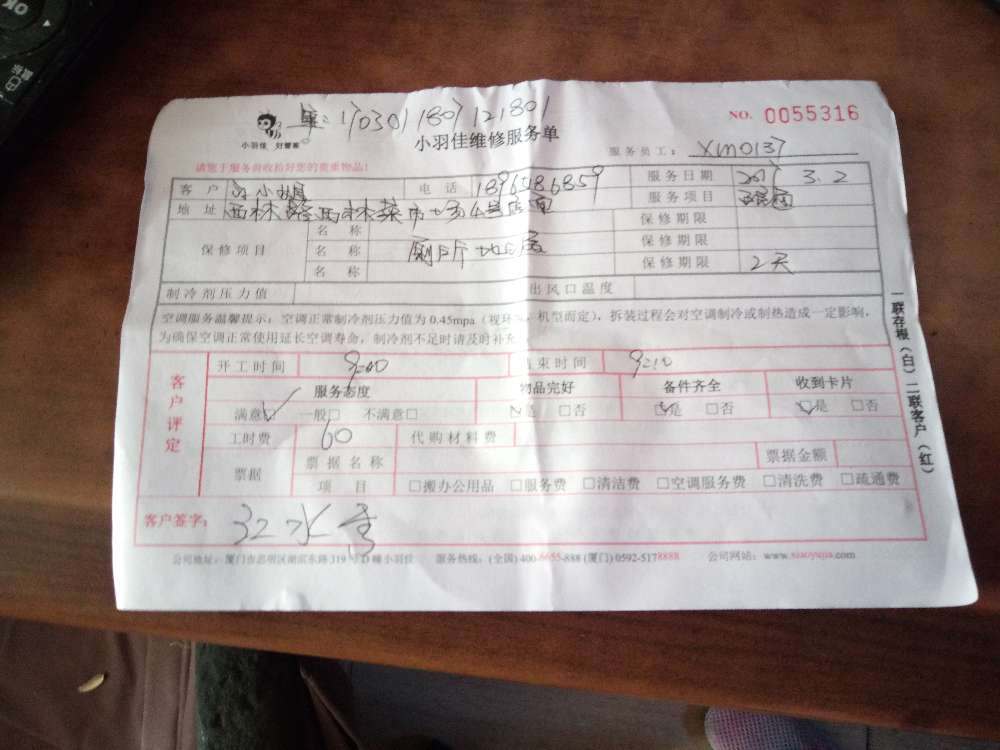 单:1703011807121801 NO. 0055316
小羽佳 好管家
小羽佳维修服务单
服务员工: XM0137
请您于服务前收拾好您的贵重物品!
客户 小姐 电话 18965186859 服务日期 2017 3.2
地址 西林路西林菜市场4号店面 服务项目
保修项目 名称 保修期限
名称 厕所地漏 保修期限
名称 保修期限 2天
制冷剂压力值 出风口温度
空调服务温馨提示:空调正常制冷剂压力值为0.45mpa(视环 机型而定),拆装过程会对空调制冷或制热造成一定影响,
为确保空调正常使用延长空调寿命,制冷剂不足时请及时补充
客户评定
开工时间 9:00 结束时间 9:10
服务态度 物品完好 备件齐全 收到卡片
满意☑ 一般□ 不满意□ ☑是 □否 ☑是 □否 ☑是 □否
工时费 60 代购材料费
票据 票据名称 票据金额
项目 □搬办公用品 □服务费 □清洁费 □空调服务费 □清洗费 □疏通费
客户签字:
公司地址:厦门市思明区湖滨东路319号D幢小羽佳 服务热线:(全国)400-6655-888 (厦门)0592-5178888 公司网站:www.xiaoyujia.com
一联存根(白)二联客户(红)